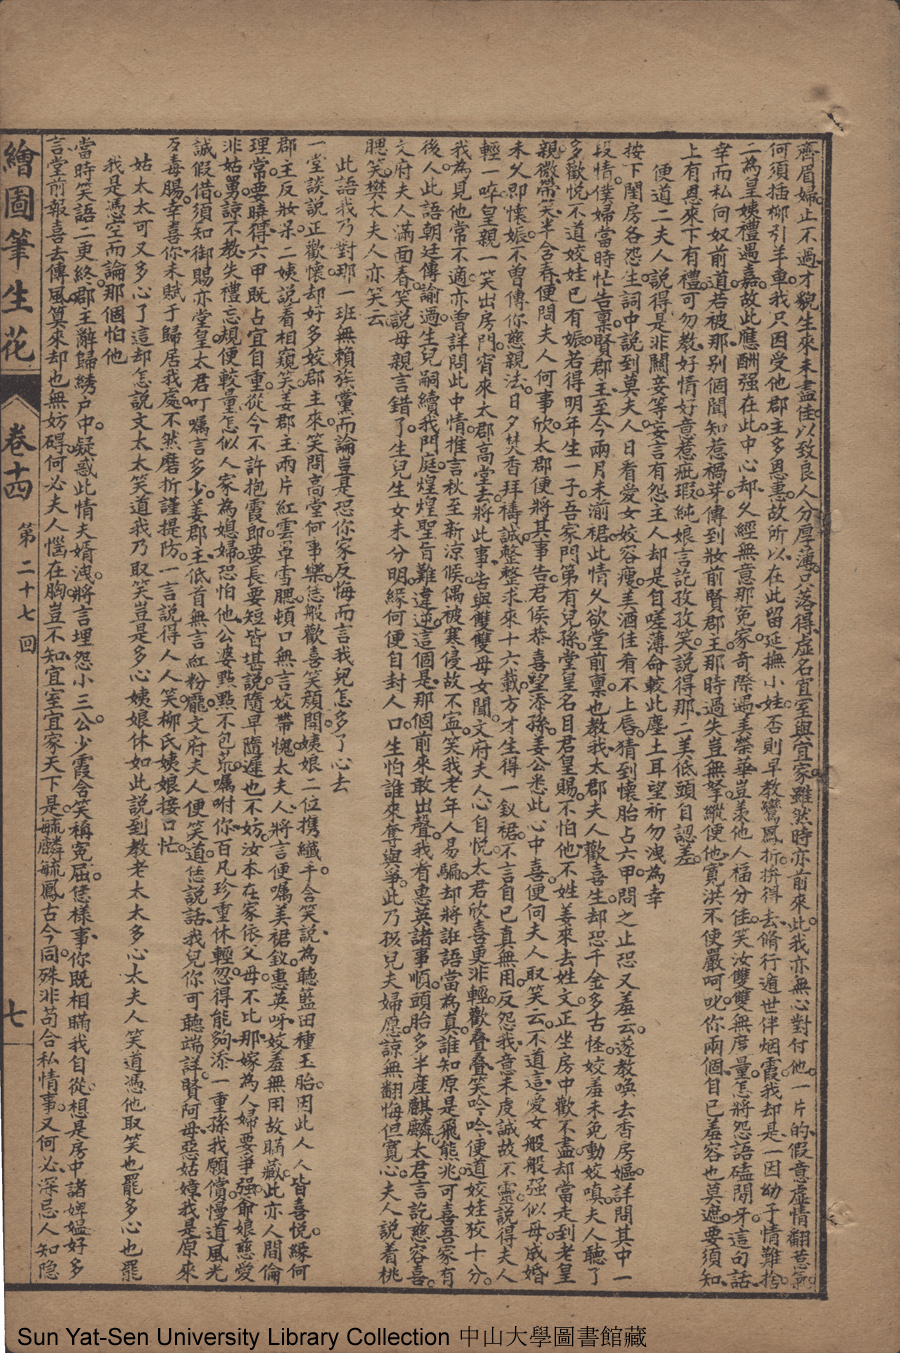 齊眉婦止不過才貌生來未盡佳以致良人分厚薄只落得虛名宜室與宜家雖然時亦前來此我亦無心對付他一片的假意虛情翻惹氣
何須插柳引羊車我只因受他郡主多恩惠故所以在此留延撫小娃否則早教鸞鳳折拚得去脩行遁世伴烟霞我却是一因幼子情難捨
二為皇姨禮過嘉故此應酬强在此中心却久經無意那寃家奇際遇美榮華豈羨他人福分佳笑汝雙雙無度量怎將怨語磕閒牙這句話
幸而私向奴前道若被那别個聞知惹禍芽傳到妝前賢郡王那時過失豈無拏縱便他寬洪不便嚴呵叱你兩個自已羞容也莫遮要須知
上有恩來下有禮可勿教好情好意惹疵瑕純娘言訖孜孜笑說得那二美低頭自認差
便道二夫人說得是非關妾等妄言有怨主人却是自嗟薄命較此塵土耳望祈勿洩為幸
按下閨房各怨生詞中說到莫夫人日看愛女姣容瘦美酒佳肴不上唇猜到懷胎占六甲問之止恐又羞云遂教喚去香房嫗詳問其中一
段情僕婦當時忙告禀賢郡王至今兩月未湔裙此情久欲堂前禀也教我太郡夫人歡喜生却恐千金多古怪姣羞未免動姣嗔夫人聽了
多歡悅不道姣娃已有娠若得明年生一子吾家門第有兒孫堂皇名目君皇賜不怕他不姓姜來去姓文正坐房中歡不盡却當走到老皇
親微帶笑半含春便問夫人何事欣太郡便將其事告君侯恭喜望添孫姜公悉此心中喜便向夫人取笑云不道這愛女般般强似母咸婚
未久即懷娠不曾傳你慈親法日夕焚香拜禱誠整整求來十六載方才生得一釵裙不言自已真無用反怨我意未虔誠故不靈說得夫人
輕一啐皇親一笑出房門宵來太郡高堂去將此事告與雙雙母女聞文府夫人心自悅太君欣喜更非輕歡疊疊笑吟吟便道姣娃狡十分
我為見他常不適亦曾詳問此中情推言秋至新涼候偶被寒侵故不寍笑我老年人易騙却將誑語當為真誰知原是飛熊兆可喜吾家有
後人此語朝廷傳諭過生兒嗣續我門庭煌煌聖旨難違逆這個是那個前來敢出聲我看惠英諸事順頭胎多半産麒麟太君言訖慈容喜
文府夫人滿面春笑說母親言錯了生兒生女未分明緣何便自封人口生怕誰來奪與爭此乃孩兒夫婦愿諒無翻悔但寬心夫人說着桃
腮笑樊太夫人亦笑云
此語我乃對那一班無賴族黨而論豈是恐你家反悔而言我兒怎多了心去
一堂談說正歡懷却好多姣郡主來笑問高堂何事樂恁般歡喜笑顏開姨娘二位携纖手含笑說為聽藍田種玉胎因此人人皆喜悅緣何
郡主反妝呆二姨說着相窺笑姜郡主兩片紅雲罩雪腮頓口無言姣帶愧太夫人將言便囑美裙釵惠英呀姣羞無用故瞞藏此亦人間倫
理常要曉得六甲既占宜自重從今不許抱霞郎要長要短皆堪說隨早隨遲也不妨汝本在家依父母不比那嫁為人婦要爭强爺娘慈愛
非姑舅諒不教失禮忘規便較量怎似人家為媳婦恐怕他公婆點點不包荒囑咐你百凡珍重休輕忽得能夠添一重孫我願償慢道風光
誠假借須知御賜亦堂皇太君叮囑言多少姜郡主低首無言紅粉龐文府夫人便笑道恁說話我兒你可聽端詳賢阿母惡姑嫜我是原來
歹毒腸幸喜你未賦于歸居我處不然磨折謹提防一言說得人人笑柳氏姨娘接口忙
姑太太可又多心了這却怎說文太太笑道我乃取笑豈是多心姨娘休如此說到教老太太多心太夫人笑道憑他取笑也罷多心也罷
我是憑空而論那個怕他
當時笑語二更終郡王辭歸綉户中疑惑此情夫婿洩將言埋怨小三公少霞含笑稱寃屈恁樣事你既相瞞我自從想是房中諸婢媪好多
言堂前報喜去傳風算來却也無妨碍何必夫人惱在胸豈不知宜室宜家天下是毓麟毓鳳古今同殊非苟合私情事又何必深忌人知隱
繪圖筆生花 卷十四 第二十七回 七
Sun Yat-Sen University Library Collection 中山大學圖書館藏